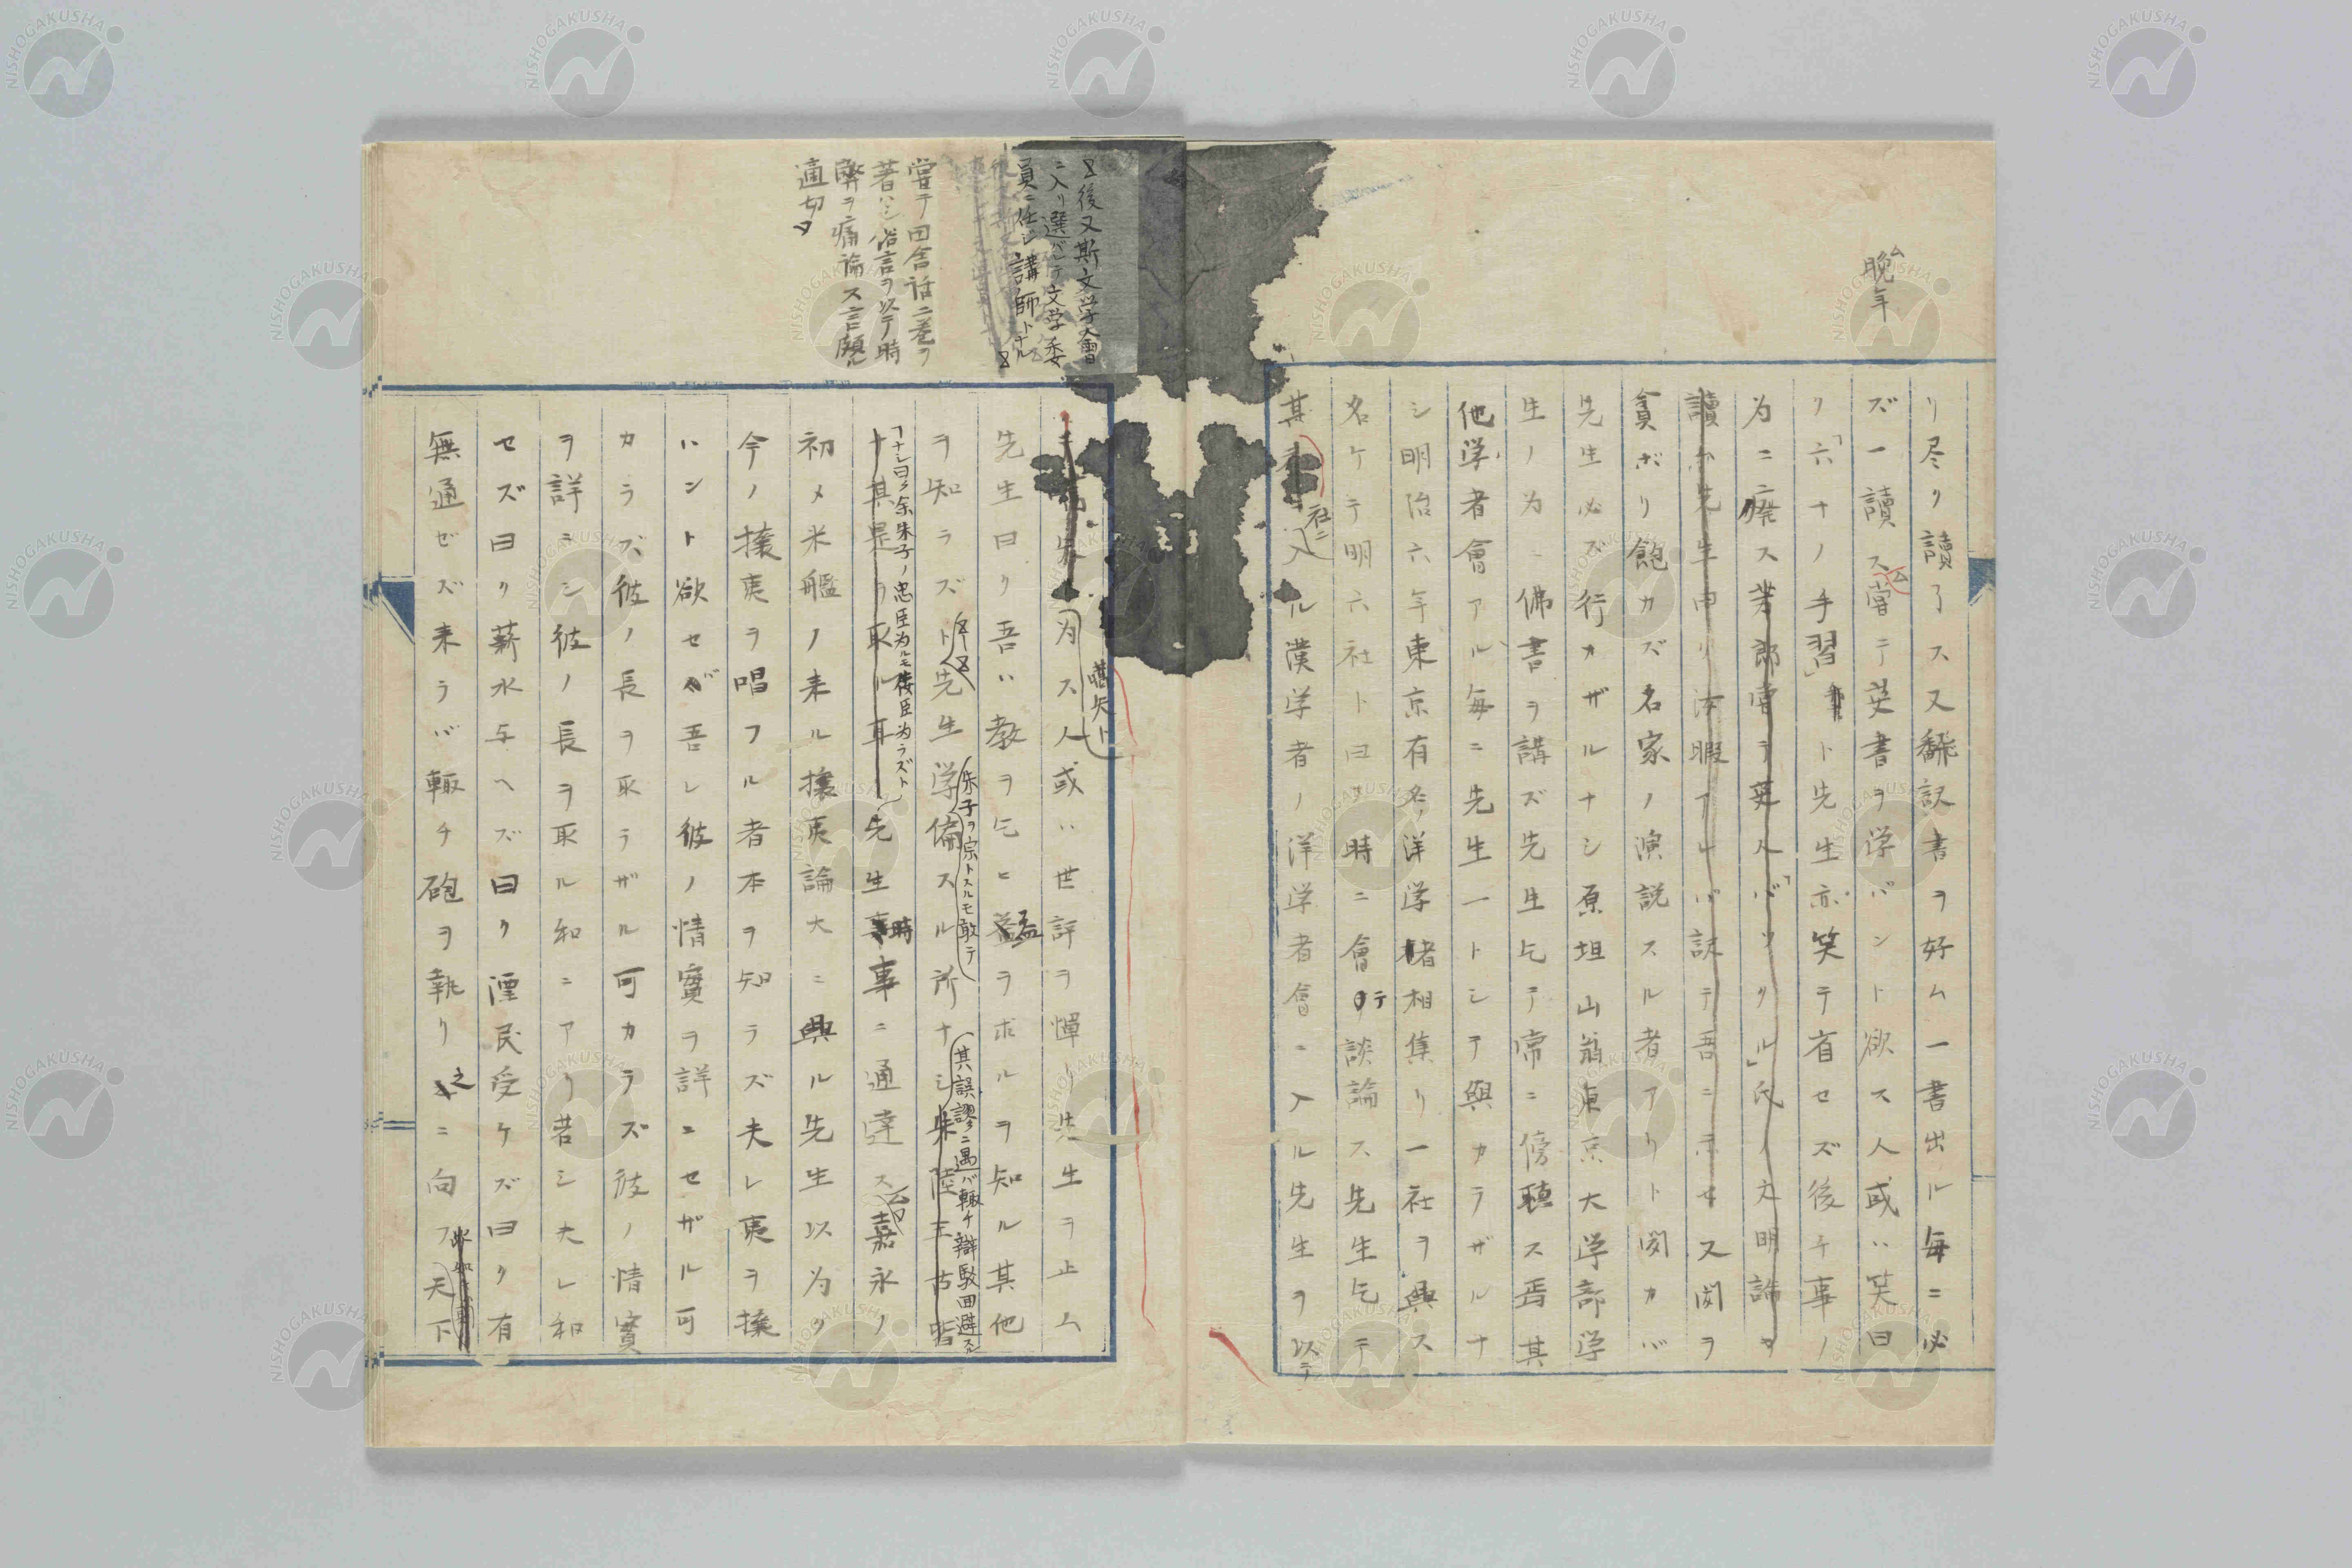 晩年
リ尽ク讀了ス又飜訳書ヲ好ム一書出ル毎ニ必
ズ一讀ス嘗テ英書ヲ学バント欲ス人或ハ笑曰
ク「六十ノ手習」ト先生亦笑テ省セズ後チ事ノ
为ニ廃ス嘗テ英人「バックル」氏ノ文明論ヲ
讀ム先生申リ沐暇アレバ訳テ吾ニ示セ又閲ヲ
貪ボリ飽カズ名家ノ演説スル者アリト聞カバ
先生必ズ行カザルナシ原坦山翁東京大学部学
生ノ为ニ佛書ヲ講ズ先生乞テ常ニ傍聴ス焉其
他学者會アル毎ニ先生一トシテ與カラザルナ
シ明治六年東京有名ノ洋学者相集リ一社ヲ興ス
名ケテ明六社ト曰フ時ニ會テ談論ス先生乞テ
其社ニ入ル漢学者ノ洋学者會ニ入ル先生ヲ以テ
後又斯文学會
ニ入リ選バレテ文学委
員ニ任じ講師トナル
嘗テ田舎話二巻ヲ
著ハシ俗言ヲ以テ時
弊ヲ痛論ス言頗ル
適切
嚆矢ト
为ス人或ハ世評ヲ憚リ先生ヲ止ム
先生曰ク吾ハ教ヲ乞ヒ益ヲ求ルヲ知ル其他
ヲ知ラズト先生学偏スル所ナシ朱陸王古皆
朱子ヲ宗トスルモ敢テ
其誤謬ニ遇バ輙チ辯駁回避ス
ナシ曰ク余朱子ノ忠臣为ルモ侫臣为ラズト
ナ其是ヲ取ル耳先生時事ニ通達ス嘉永ノ
初メ米艦ノ来ル攘夷論大ニ興ル先生以为ク
今ノ攘夷ヲ唱フル者本ヲ知ラズ夫レ夷ヲ攘
ハント欲セバ吾レ彼ノ情實ヲ詳ニセザル可
カラズ彼ノ長ヲ取ラザル可カラズ彼ノ情實
ヲ詳ニシ彼ノ長ヲ取ル和ニアリ若シ夫レ和
セズ曰ク薪水与ヘズ曰ク漂民受ケズ曰ク有
無通ゼズ来ラバ輙チ砲ヲ執リ之ニ向フ天下